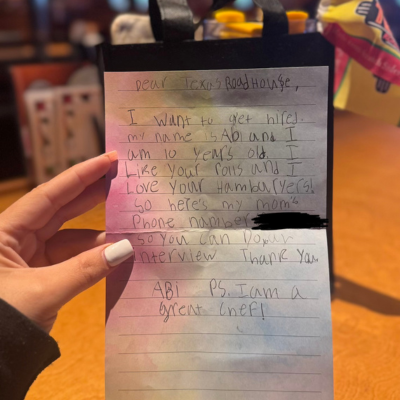 Dear Texas RoadHouse,
I want to get hired.
my name is Abi and I
am 10 years old. I
Like your rolls and I
Love your Hamburgers!
So here's my mom's
Phone number
So you can Do our
interview Thank you
ABi P.S. I am a
great chef!